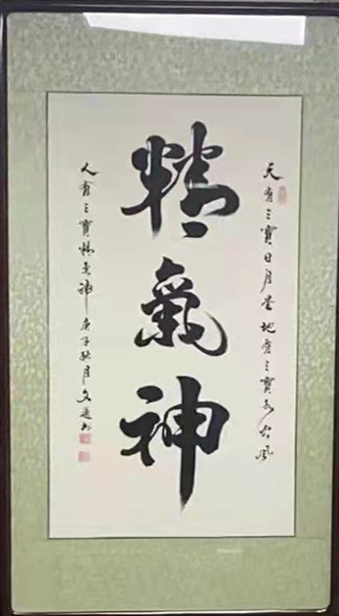 天有三寶日月星地有三寶水火風
精氣神
人有三寶精氣神 庚子秋月文